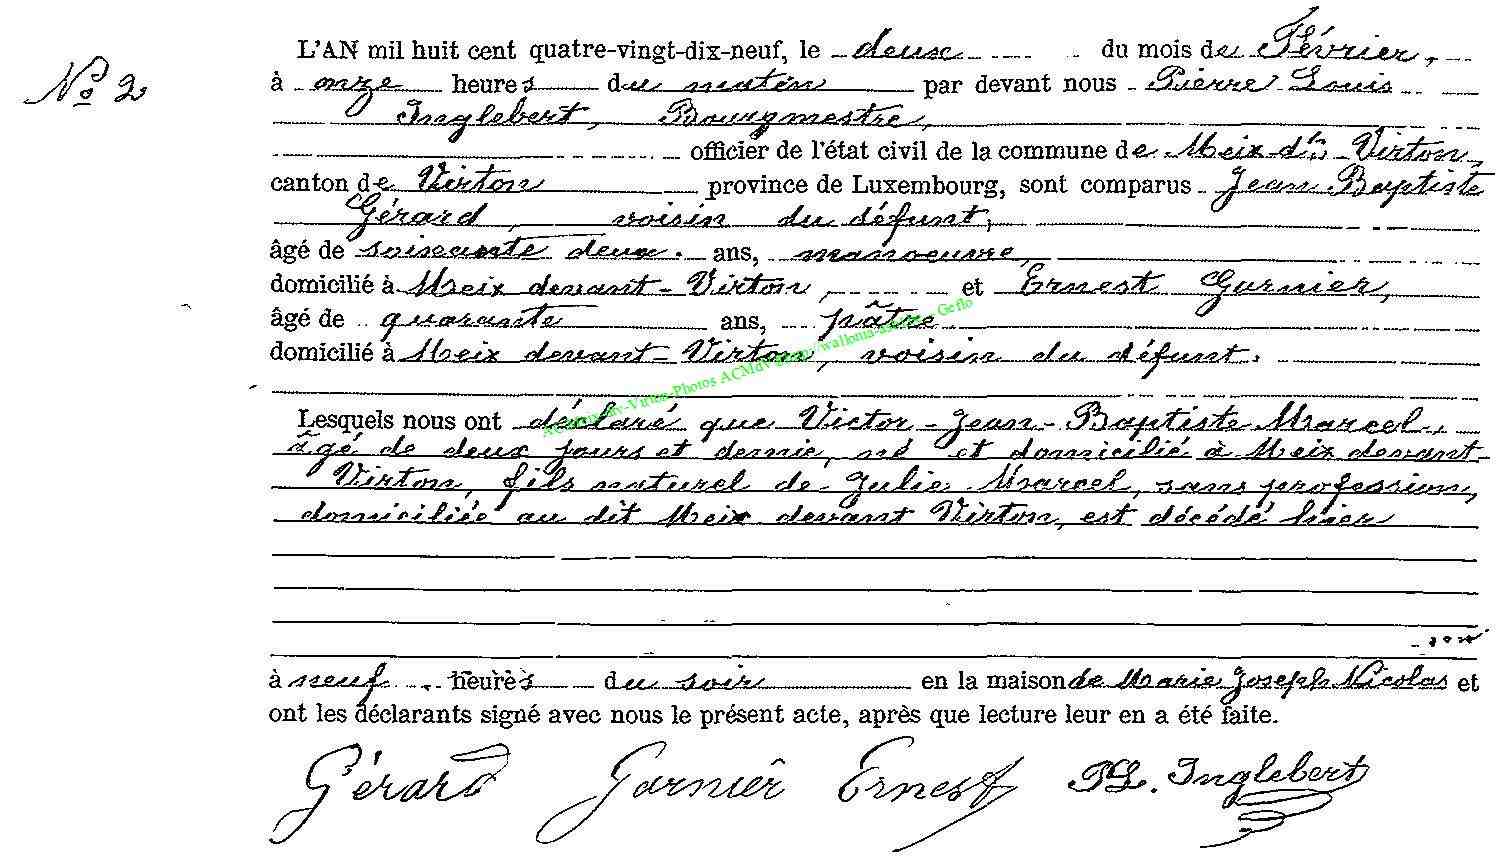 L'AN mil huit cent quatre-vingt-dix-neuf, le deux du mois de Février,
N° 2 à onze heures du matin par devant nous Pierre Louis
Inglebert, Bourgmestre,
officier de l'état civil de la commune de Meix-dt-Virton,
canton de Virton province de Luxembourg, sont comparus Jean Baptiste
Gérard, voisin du défunt,
âgé de soixante deux. ans, manoeuvre,
domicilié à Meix devant-Virton, et Ernest Garnier,
âgé de quarante ans, pâtre
domicilié à Meix devant-Virton, voisin du défunt.
Lesquels nous ont déclaré que Victor-Jean-Baptiste Marcel,
âgé de deux jours et demie, né et domicilié à Meix devant-
Virton, fils naturel de Julie Marcel, sans profession,
domiciliée au dit Meix devant Virton, est décédé hier
à neuf heures du soir en la maison de Marie Joseph Nicolas et
ont les déclarants signé avec nous le présent acte, après que lecture leur en a été faite.
Gérard Garnier Ernest PL. Inglebert